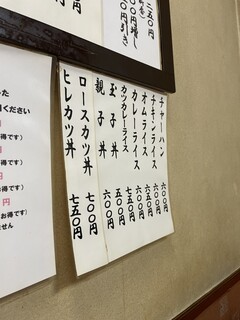 二五〇円
〇〇円増し
〇円引き
チャーハン 六〇〇円
チキンライス 六〇〇円
オムライス 六五〇円
カレーライス
カツカレーライス
玉子丼 五〇〇円
親子丼 六〇〇円
ロースカツ丼 七〇〇円
ヒレカツ丼 七五〇円
ください
円
お得です）
円
お得です）
円
お得です）
ません